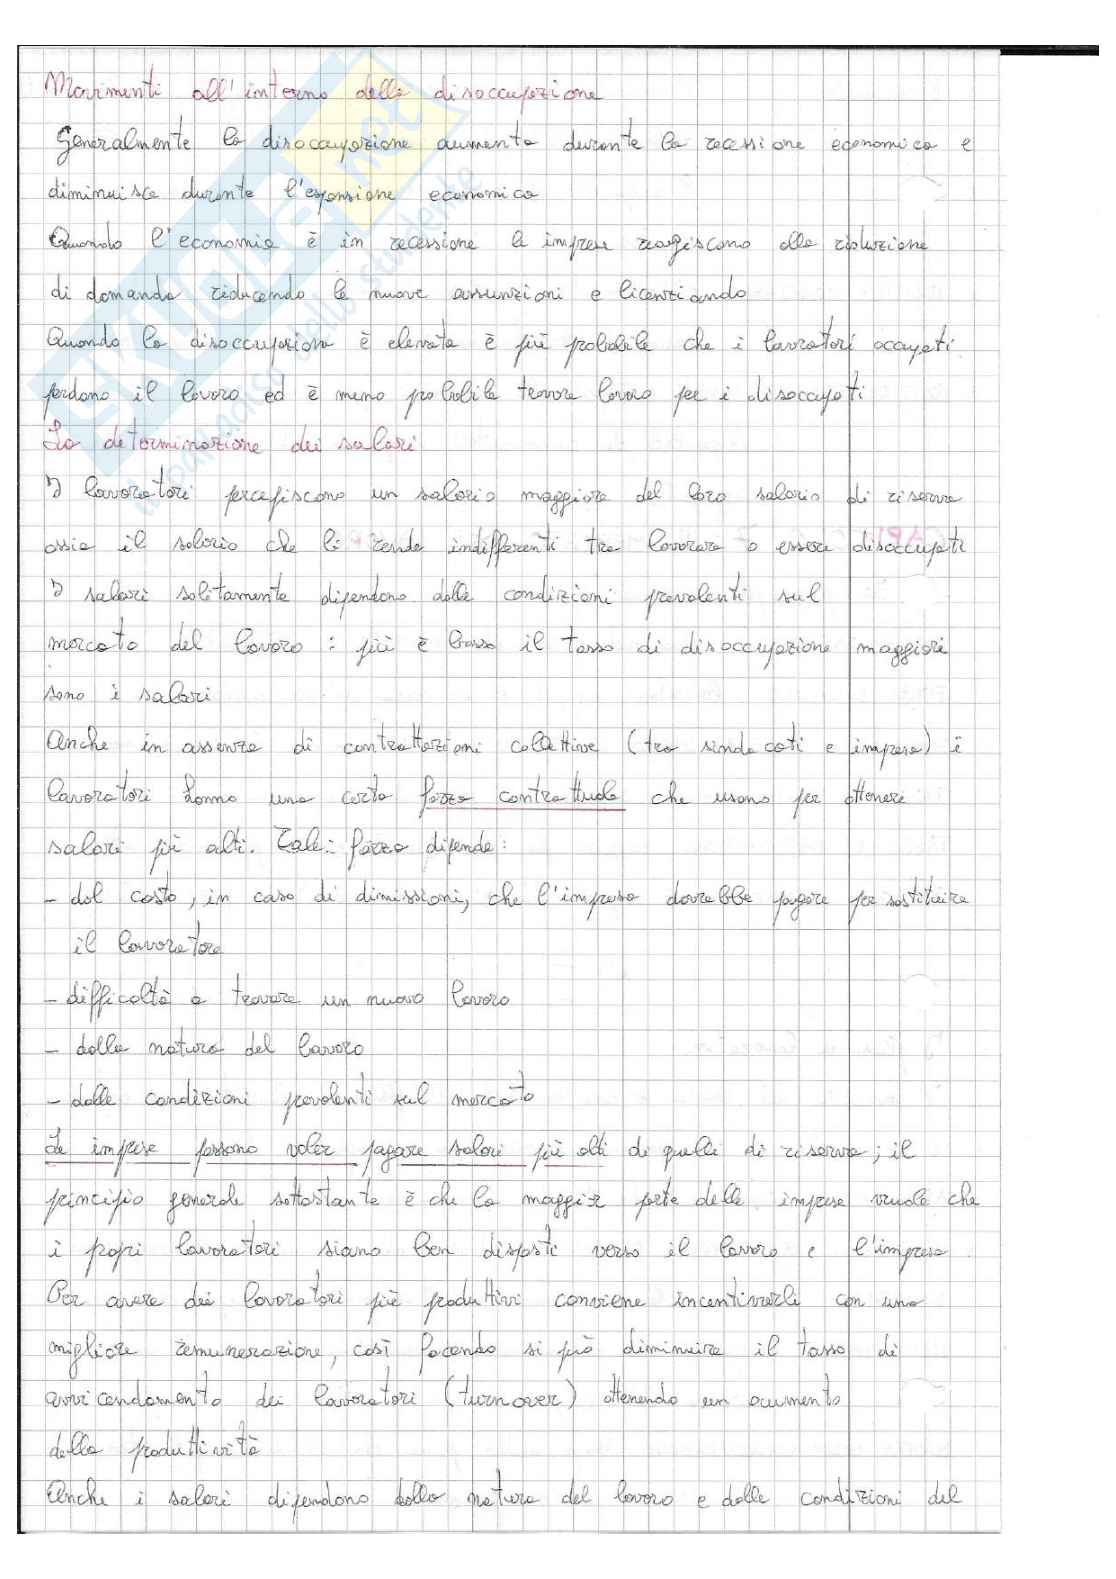 Movimenti all'interno della disoccupazione
Generalmente la disoccupazione aumenta durante la recessione economica e
diminuisce durante l'espansione economica
Quando l'economia è in recessione le imprese reagiscono alla riduzione
di domanda riducendo le nuove assunzioni e licenziando
Quando la disoccupazione è elevata è più probabile che i lavoratori occupati
perdano il lavoro ed è meno probabile trovare lavoro per i disoccupati
La determinazione dei salari
I lavoratori percepiscono un salario maggiore del loro salario di riserva
ossia il salario che li rende indifferenti tra lavorare o essere disoccupati
I salari solitamente dipendono dalle condizioni prevalenti sul
mercato del lavoro : più è basso il tasso di disoccupazione maggiori
sono i salari
Anche in assenza di contrattazioni collettive (tra sindacati e imprese) i
lavoratori hanno una certa forza contrattuale che usano per ottenere
salari più alti. Tale forza dipende:
- dal costo, in caso di dimissioni, che l'impresa dovrebbe pagare per sostituire
il lavoratore
- difficoltà a trovare un nuovo lavoro
- dalla natura del lavoro
- dalle condizioni prevalenti sul mercato
Le imprese possono voler pagare salari più alti di quelli di riserva; il
principio generale sottostante è che la maggior parte delle imprese vuole che
i propri lavoratori siano ben disposti verso il lavoro e l'impresa
Per avere dei lavoratori più produttivi conviene incentivarli con una
migliore remunerazione, così facendo si può diminuire il tasso di
avvicendamento dei lavoratori (turnover) ottenendo un aumento
della produttività
Anche i salari dipendono dalla natura del lavoro e dalle condizioni del
SKUOLA.net